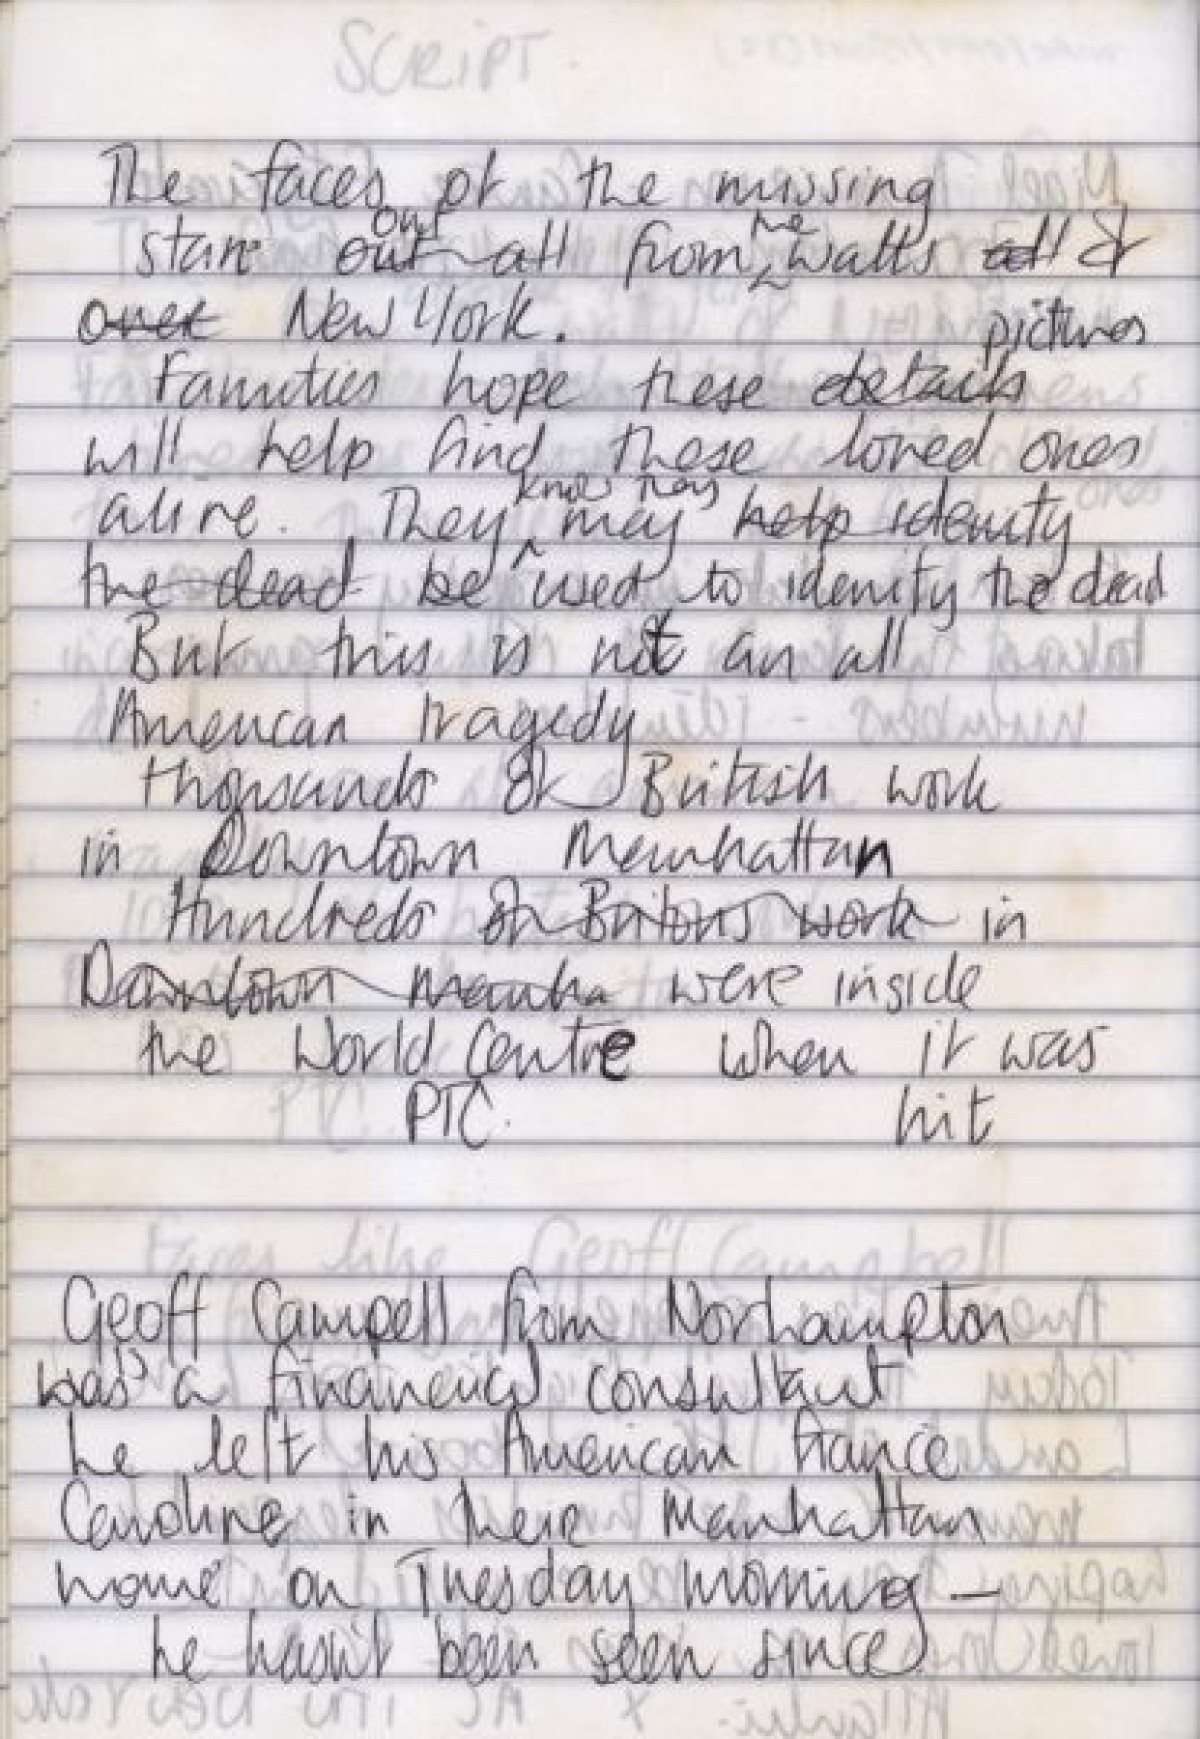 SCRIPT.
The faces of the missing
stare out out all from the walls all of
over New York.
Families hope these details pictures
will help find these loved ones
alive. They know they may help identify
the dead be used to identify the dead
But this is not an all
American tragedy
thousands of British work
in Downtown Manhattan
Hundreds of Britons work in
Downtown Manha were inside
the World Centre when it was
PTC. hit
Faces like Geoff Campbell
Geoff Campell from Northampton
was a financial consultant
he left his American fiance
Caroline in there Manhattan
home on Tuesday morning —
he hasn't been seen since